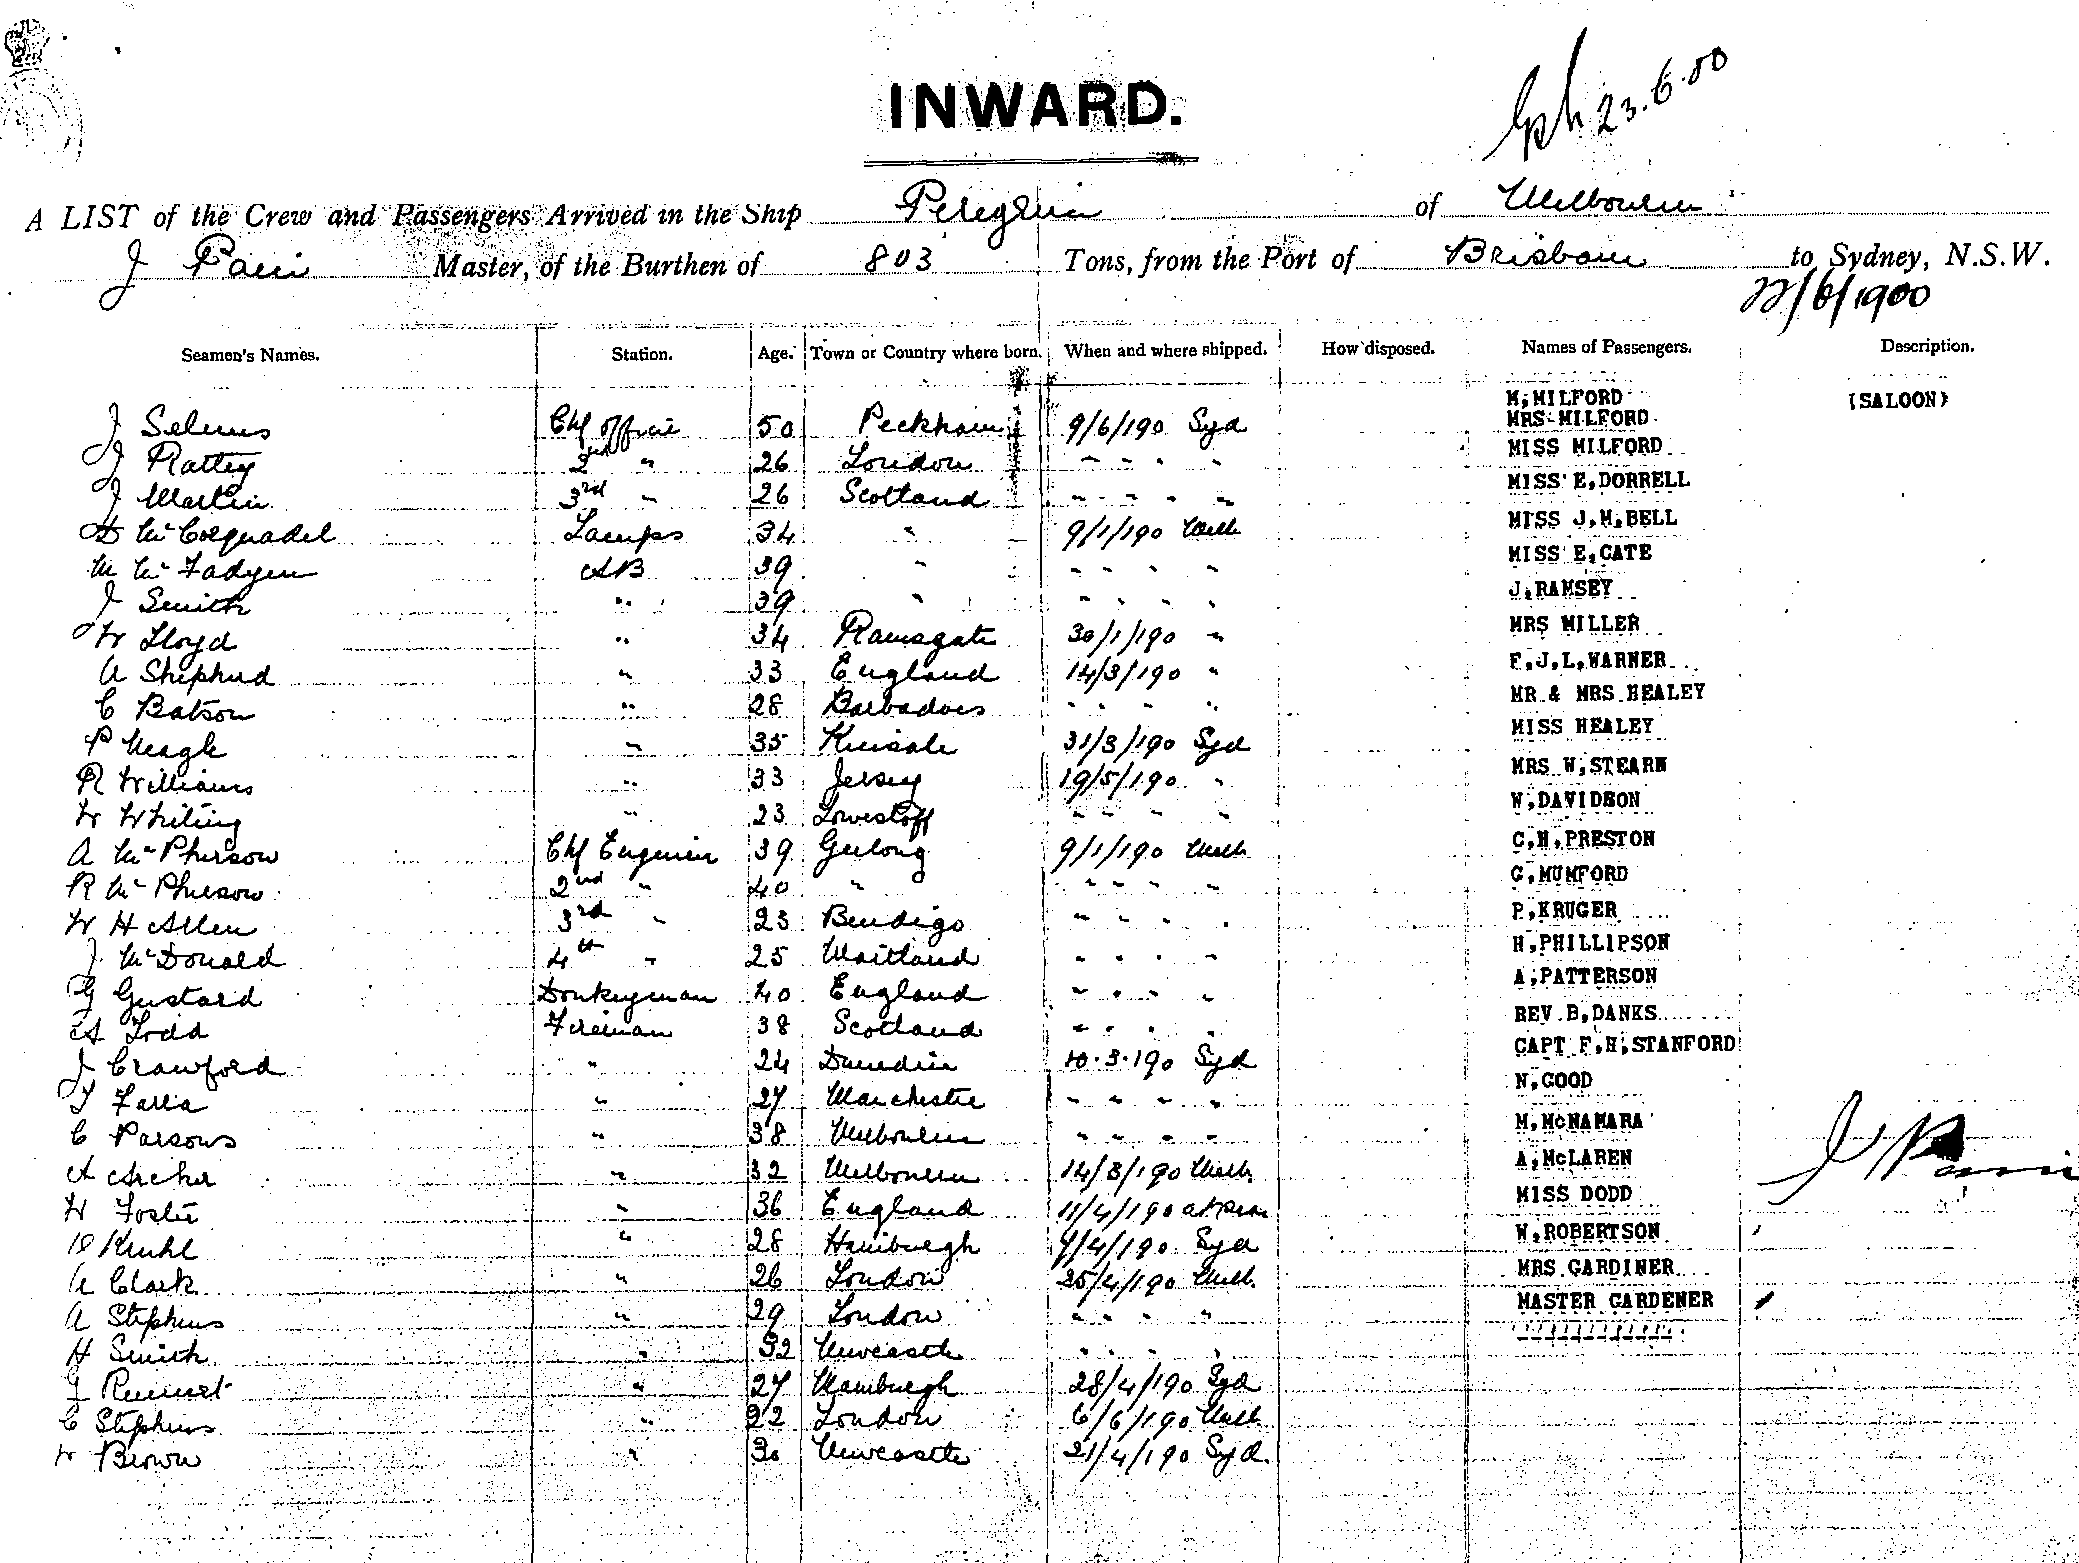 INWARD.
23.6.00
A LIST of the Crew and Passengers Arrived in the Ship Peregrine of Melbourne
J Master, of the Burthen of 803 Tons, from the Port of Brisbane to Sydney, N.S.W.
22/6/1900
Seamen's Names. Station. Age. Town or Country where born. When and where shipped. How disposed. Names of Passengers. Description.
M,MILFORD (SALOON)
J Selmes Chf Officer 50 Peckham 9/6/190 Syd MRS MILFORD
J Rattey 2nd " 26 London " " " " MISS MILFORD
J Martin 3rd " 26 Scotland " " " " MISS E,DORRELL
D Lamps 34 " 9/1/190 Melb MISS J,M,BELL
M McFadyen AB 39 " " " " " MISS E,CATE
J Smith " 39 " " " " " J,RAMSEY
W Lloyd " 34 Ramsgate 30/1/190 " MRS MILLER
A Shepherd " 33 England 14/3/190 " F,J,L,WARNER
C Batson " 28 Barbadoes " " " " MR & MRS HEALEY
P Neagle " 35 Kinsale 31/3/190 Syd MISS HEALEY
R Williams " 33 Jersey 19/5/190 " MRS W,STEARN
W Whiting " 23 Lowestoff " " " " W,DAVIDSON
A McPherson Chf Engineer 39 Geelong 9/1/190 Melb C,H,PRESTON
R McPherson 2nd " 40 " " " " " G,MUMFORD
W H Allen 3rd " 23 Bendigo " " " " P,KRUGER
J McDonald 4th " 25 Maitland " " " " H,PHILLIPSON
G Gustard Donkeyman 40 England " " " " A,PATTERSON
A Todd Fireman 38 Scotland " " " " REV B,DANKS
J Crawford " 24 Dunedin 10.3.190 Syd CAPT F,H,STANFORD
T " 27 Manchester " " " " N,GOOD
C Parsons " 38 Melbourne " " " " M,McNAMARA
A Archer " 32 Melbourne 14/3/190 Melb A,McLAREN
W Foster " 36 England 11/4/190 MISS DODD
Kruhl " 28 Hamburgh 4/190 Syd W,ROBERTSON
A Clark " 26 London 25/4/190 Melb MRS GARDINER
A Stephens " 29 London " " " " MASTER GARDENER
H Smith " 32 Newcastle " " " "
J " 27 Hamburgh 28/4/190 Syd
C Stephens " 22 London 6/6/190 Melb
W Brown " 30 Newcastle 21/4/190 Syd.